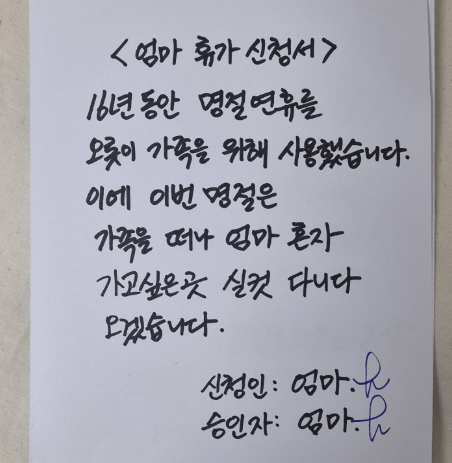 <엄마 휴가 신청서>
16년 동안 명절연휴를
오롯이 가족을 위해 사용했습니다.
이에 이번 명절은
가족을 떠나 엄마 혼자
가고싶은곳 실컷 다니다
오겠습니다.
신청인: 엄마.
승인자: 엄마.